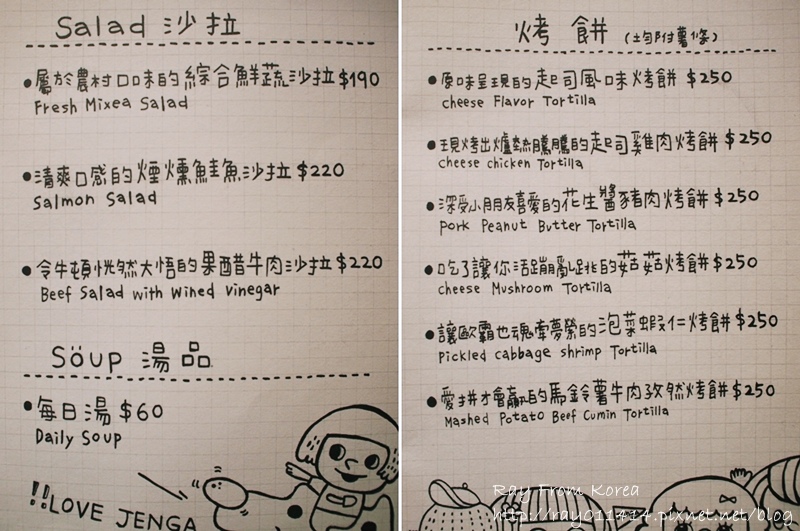 Salad 沙拉
●屬於農村口味的綜合鮮蔬沙拉$190
Fresh Mixea Salad
●清爽口感的煙燻鮭魚沙拉$220
Salmon Salad
●令牛頓恍然大悟的果醋牛肉沙拉$220
Beef Salad with wined vinegar
Söup 湯品
●每日湯$60
Daily Soup
!!LOVE JENGA
烤餅 (均附薯條)
●原味呈現的起司風味烤餅$250
cheese Flavor Tortilla
●現烤出爐熱騰騰的起司雞肉烤餅$250
cheese chicken Tortilla
●深受小朋友喜愛的花生醬豬肉烤餅$250
pork Peanut Butter Tortilla
●吃了讓你活蹦亂跳的菇菇烤餅$250
cheese Mushroom Tortilla
●讓歐霸也魂牽夢縈的泡菜蝦仁烤餅$250
Pickled cabbage shrimp Tortilla
●愛拼才會贏的馬鈴薯牛肉孜然烤餅$250
Mashed Potato Beef Cumin Tortilla
Ray From Korea
http://ray011414.pixnet.net/blog